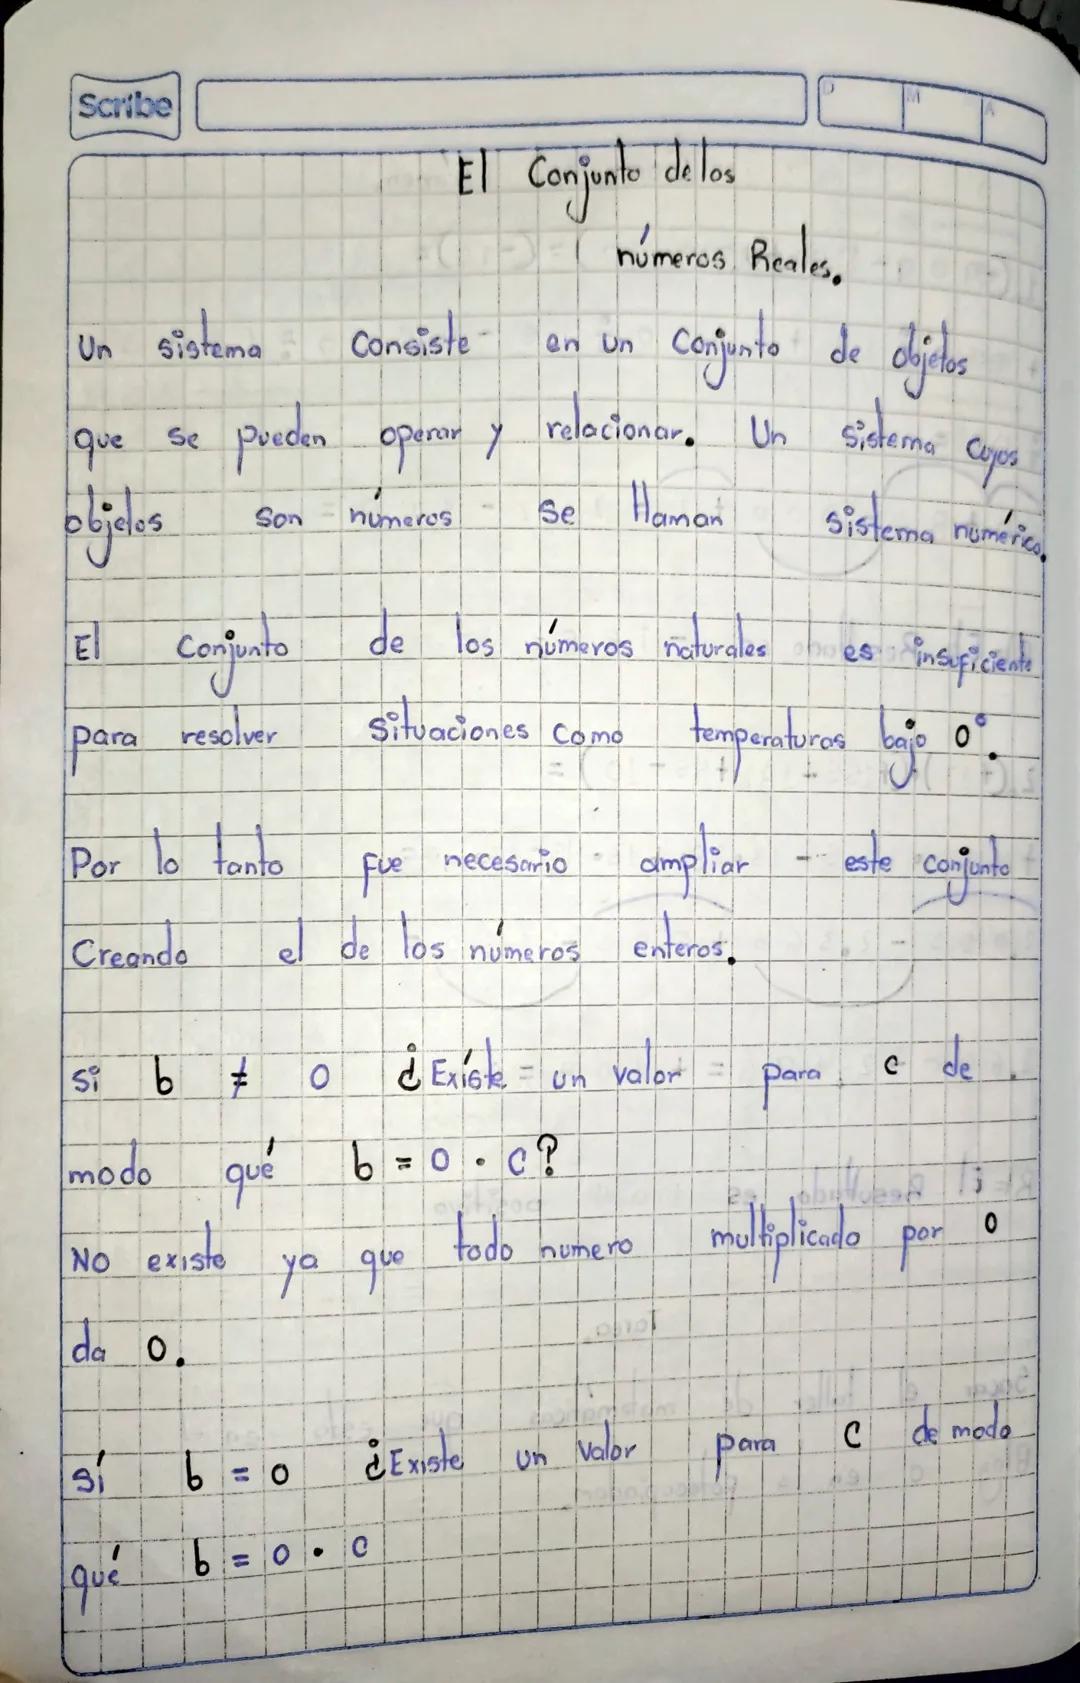 Scribe
D M A
El Conjunto de los
números Reales.
Un sistema Consiste en un Conjunto de objetos
que se pueden operar y relacionar. Un sistema cuyos
objetos son números se llaman sistema numérico.
El Conjunto de los números naturales es insuficiente
para resolver situaciones como temperaturas bajo 0°.
Por lo tanto fue necesario ampliar este conjunto
Creando el de los números enteros.
si b ≠ 0 ¿Exíste un valor para c de
modo qué b = 0 · c?
NO existe ya que todo numero multiplicado por 0
da 0.
sí b = 0 ¿Existe un valor para C de modo
qué b = 0 · c